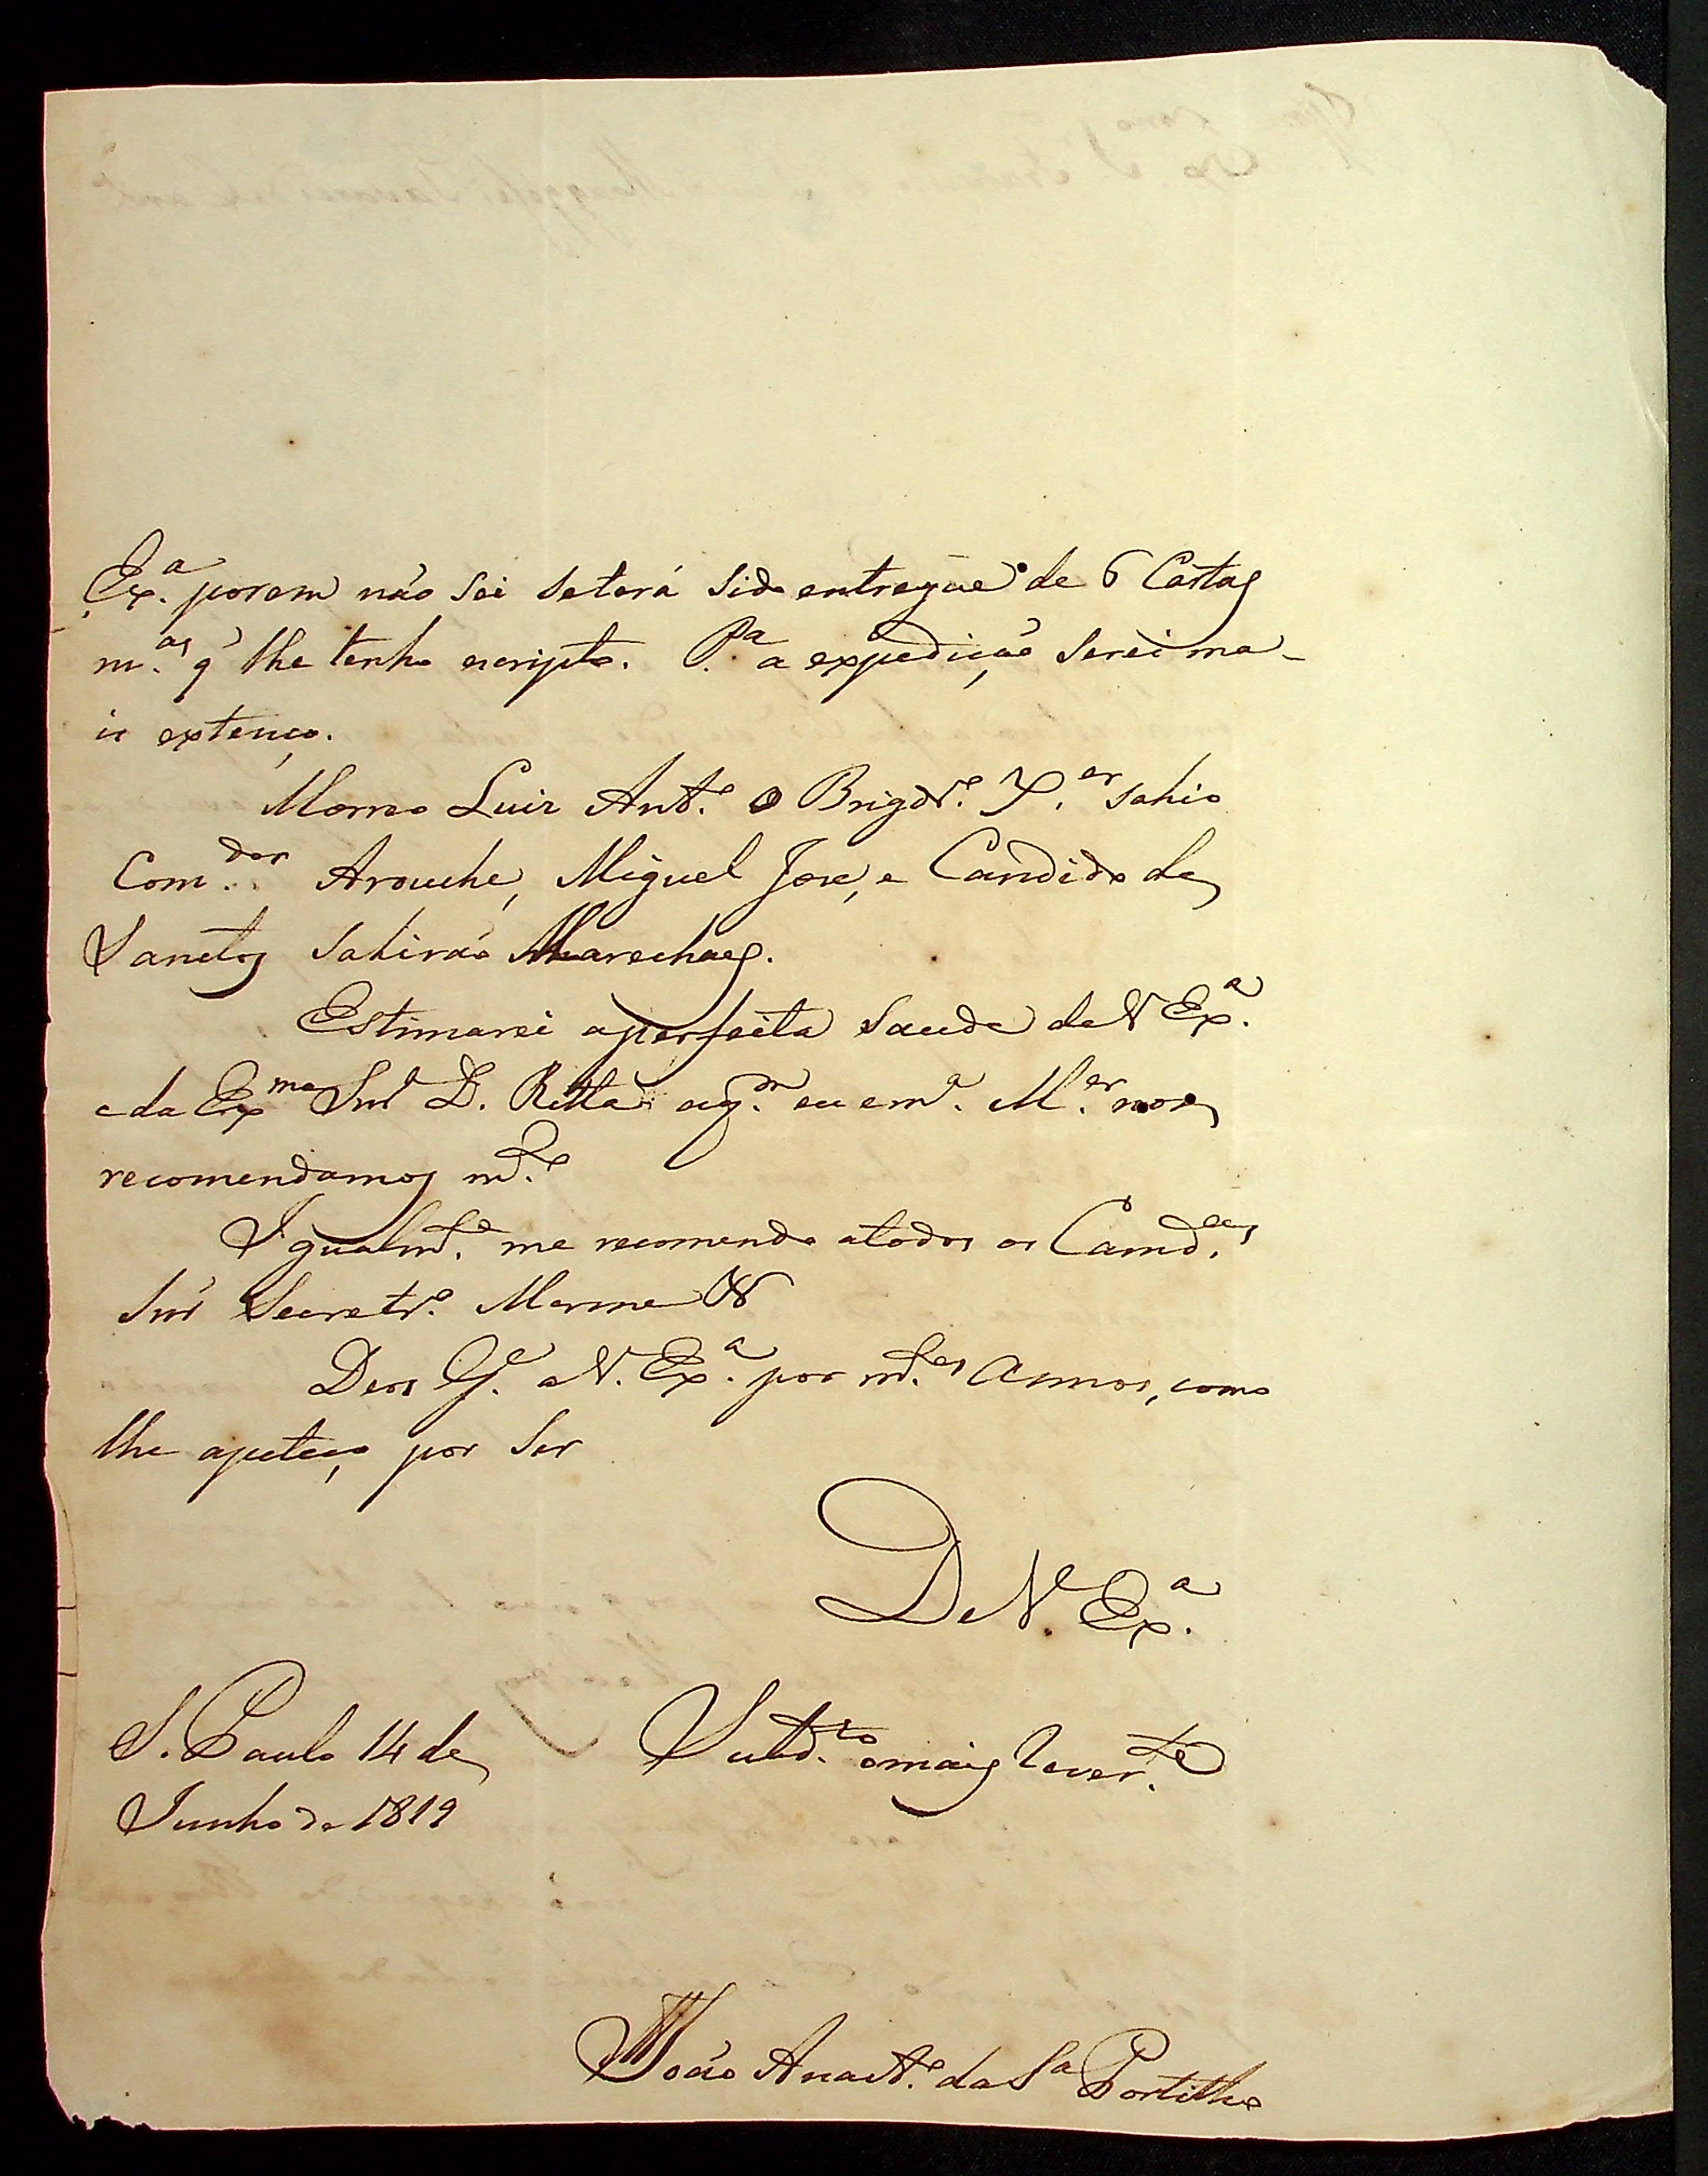 Ex.ª porem não Sei Seterá Sido entregue de 6 Cartas
m.as q' lhe tenho escripto. P.ª a expedição Serei ma-
is extenço.
Morreo Luis Ant.º o Brigdr.º X.er Sahio
Com.dor Arouche, Miguel Jose, e Candido de
Sanctos Sahirão Marechaes.
Estimarei aperfeita Saude de V Ex.ª
e da Ex.ma Snrª D. Ritta aq.m eu em.ª M.er nos
recomendamos m.te
Igualm.te me recomendo atodos os Camd.as
Snr' Secretr.º
Deos G.e a V. Ex.ª por m.tes Annos, como
lhe apeteço por Ser
De V. Ex.ª
S. Paulo 14 de
Junho de 1819
Subd.to omais Rever.te
João Anast.º da Sª Portilho